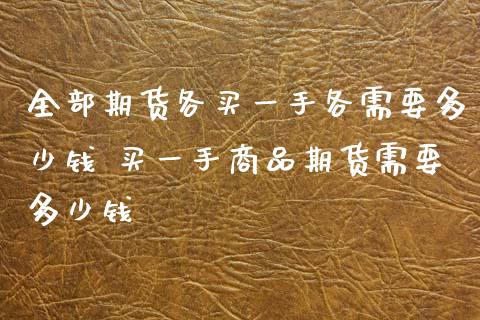 全部期货各买一手各需要多
少钱 买一手商品期货需要
多少钱